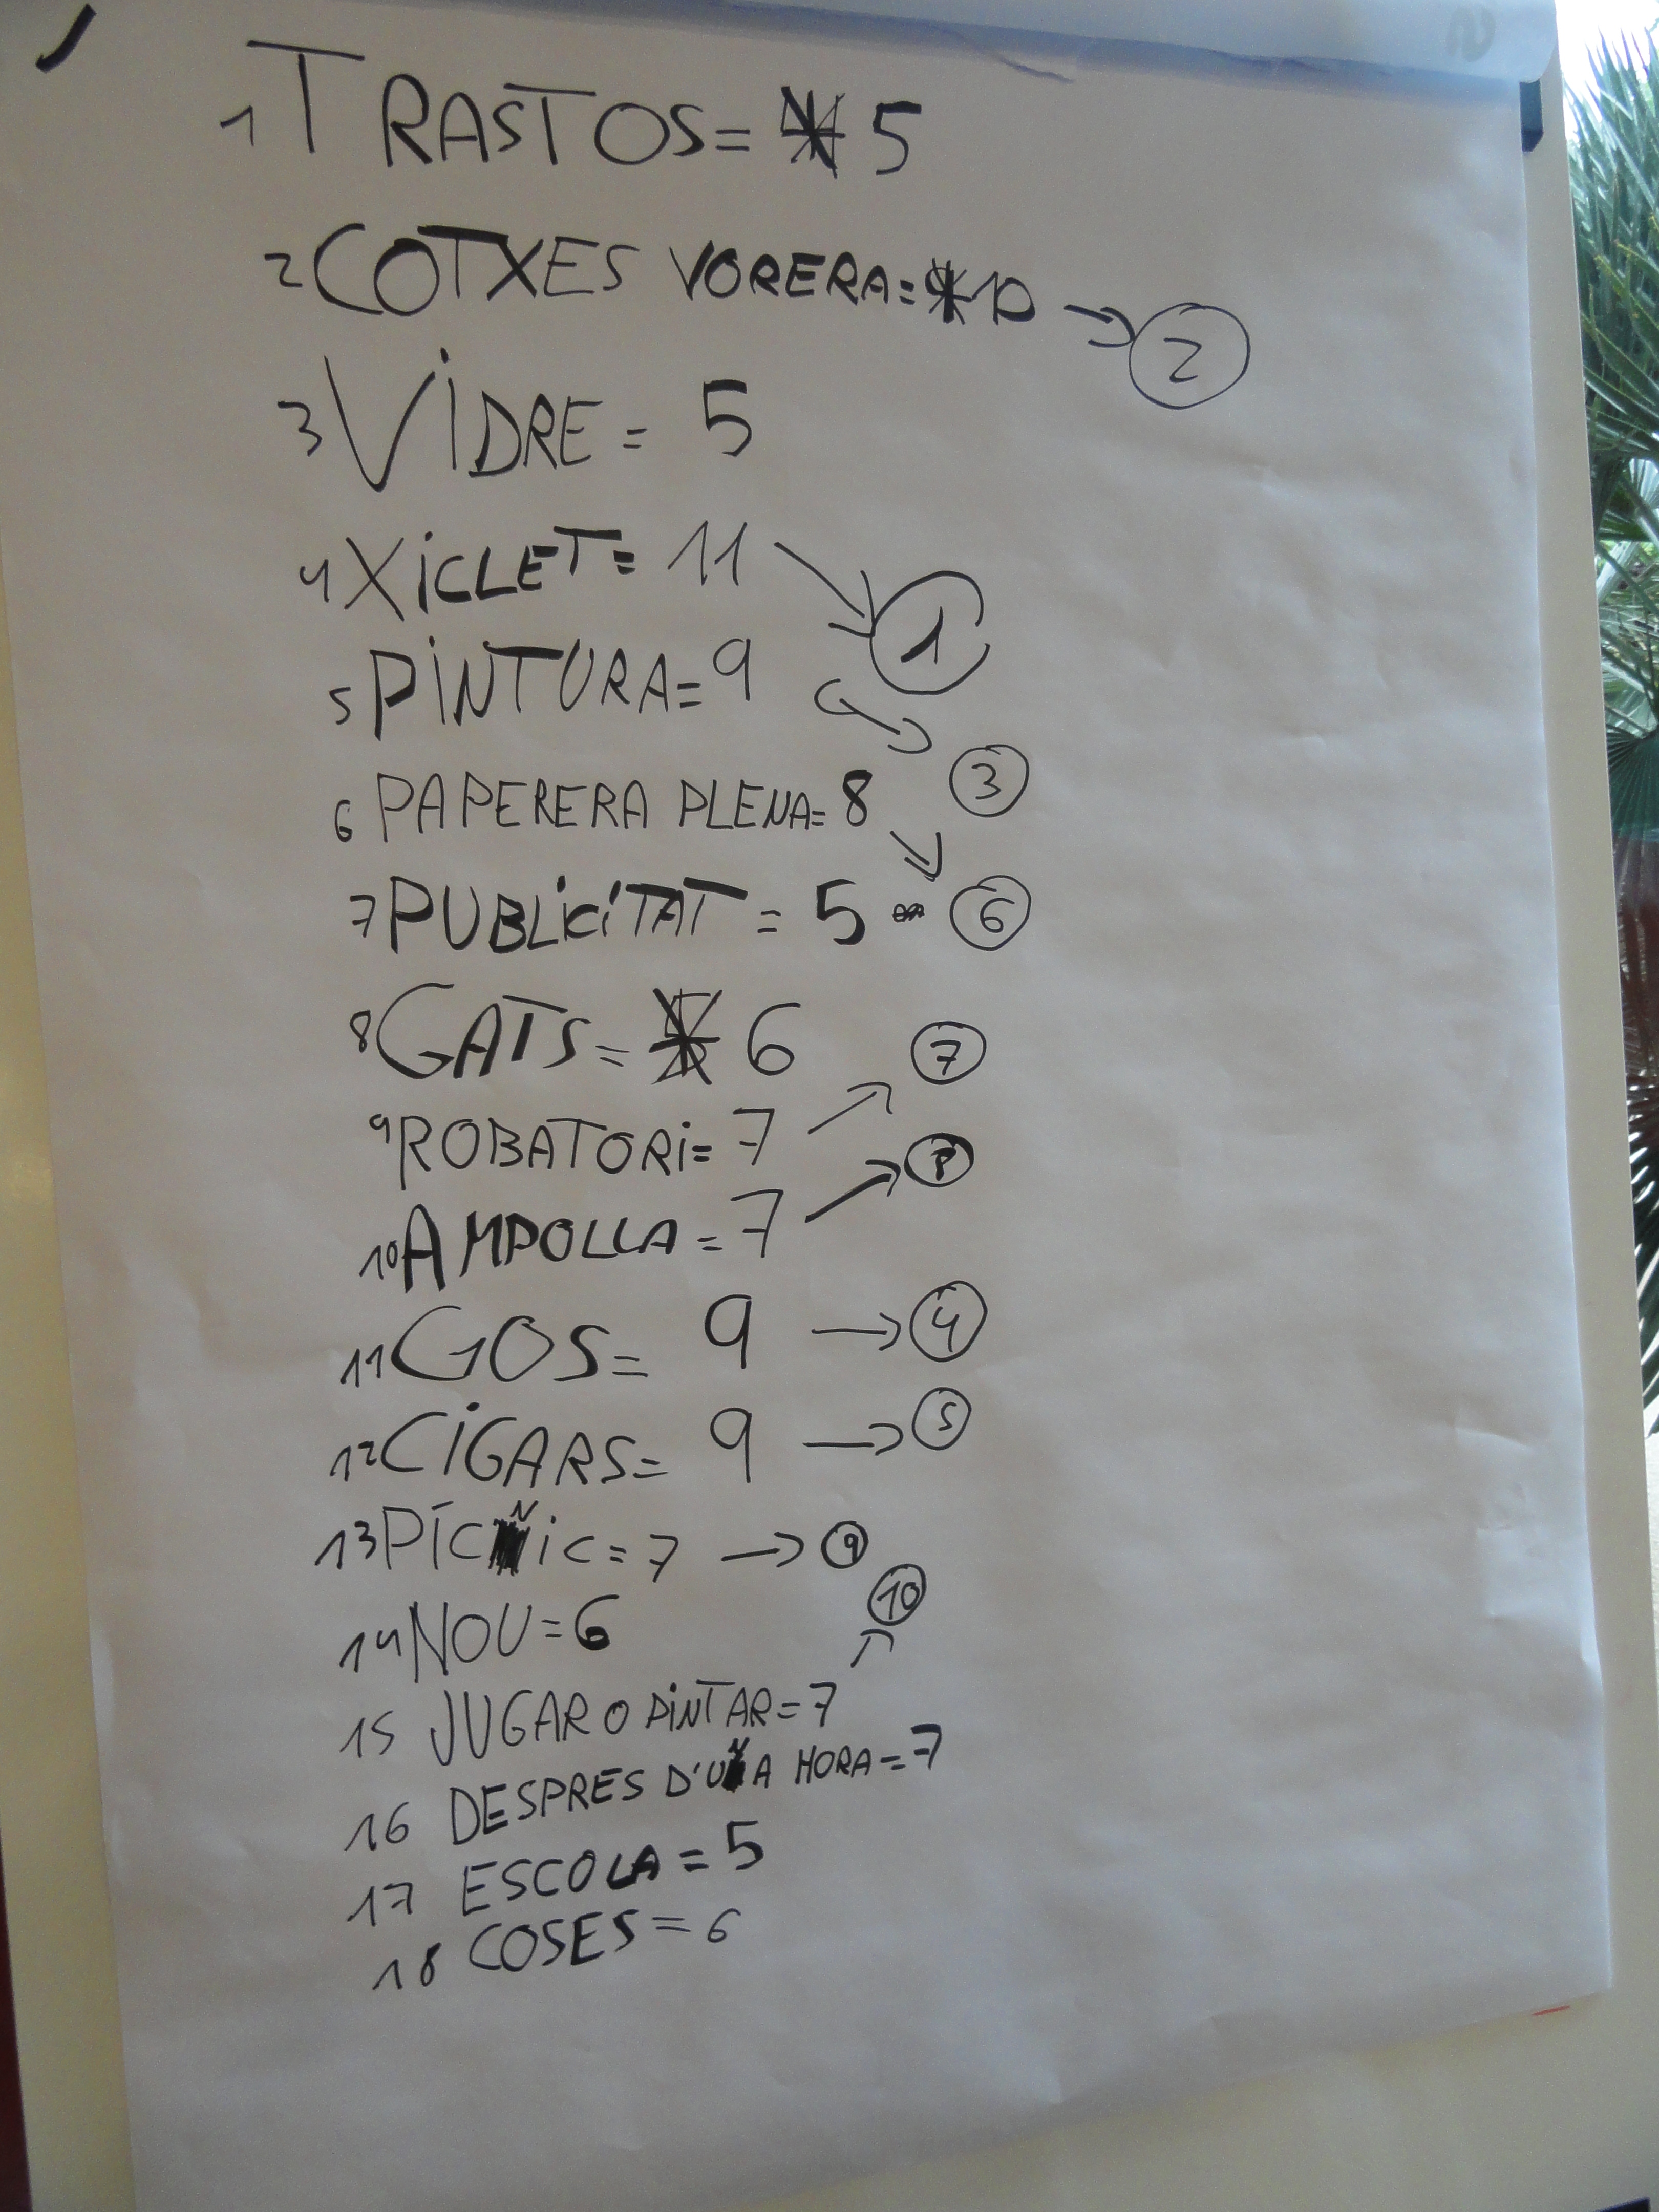 1 TRASTOS= 5
2 COTXES VORERA= 10 → 2
3 VIDRE = 5
4 XICLET= 11 → 1
5 PINTURA= 9 → 3
6 PAPERERA PLENA= 8 → 6
7 PUBLICITAT = 5
8 GATS= 6
9 ROBATORI= 7 → 7
10 AMPOLLA= 7 →
11 GOS= 9 → 4
12 CIGARS= 9 → 5
13 PÍCNIC= 7 → 9
14 NOU=6
15 JUGAR O PINTAR=7 → 10
16 DESPRES D'UNA HORA=7
17 ESCOLA=5
18 COSES=6